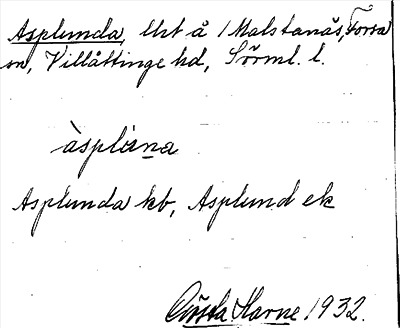 Asplunda, lht å 1 Malstanäs, Forssa
sn, Villåttinge hd, Sörml. l.
àsplúna
Asplunda kb, Asplund ek
Gösta Harne 1932.